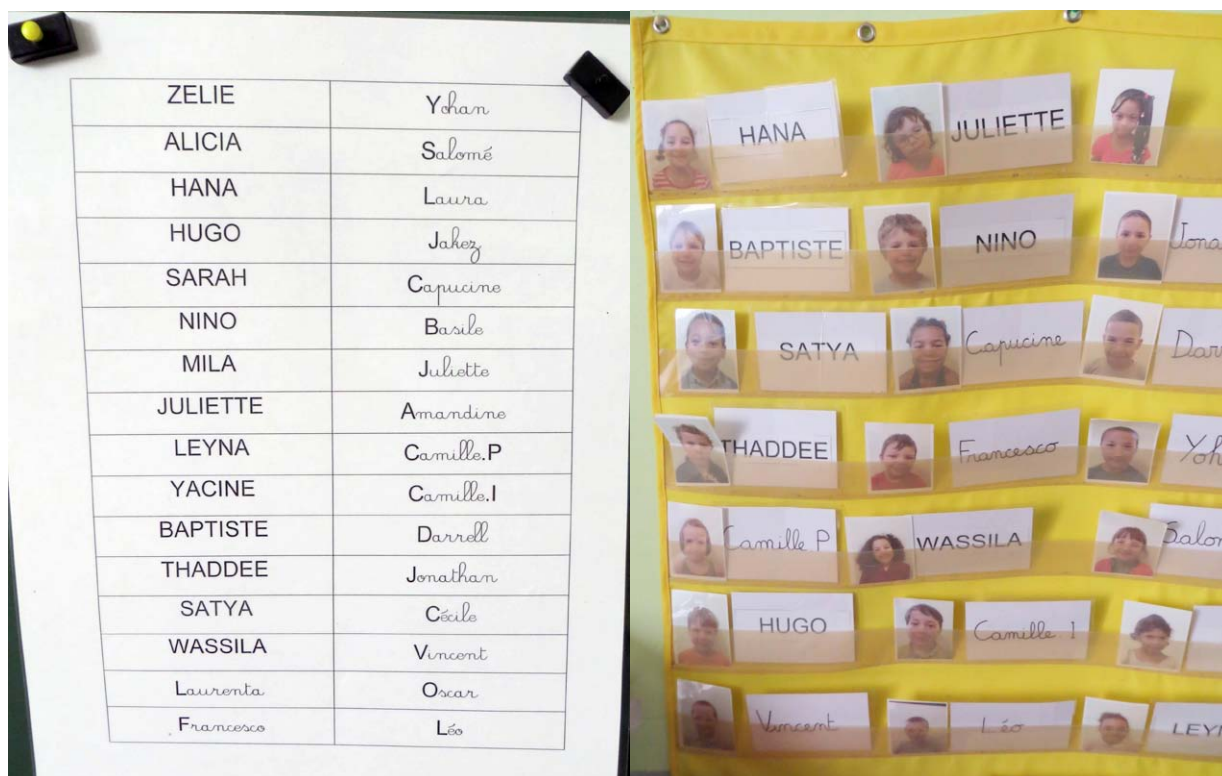 ZELIE Yohan
ALICIA Salomé
HANA Laura
HUGO Jakez
SARAH Capucine
NINO Basile
MILA Juliette
JULIETTE Amandine
LEYNA Camille.P
YACINE Camille.I
BAPTISTE Darrell
THADDEE Jonathan
SATYA Cécile
WASSILA Vincent
Laurenta Oscar
Francesco Léo
HANA JULIETTE
BAPTISTE NINO Jona
SATYA Capucine Dar
THADDEE Francesco Yoh
Camille P WASSILA Salom
HUGO Camille.I
Vincent Léo LEY